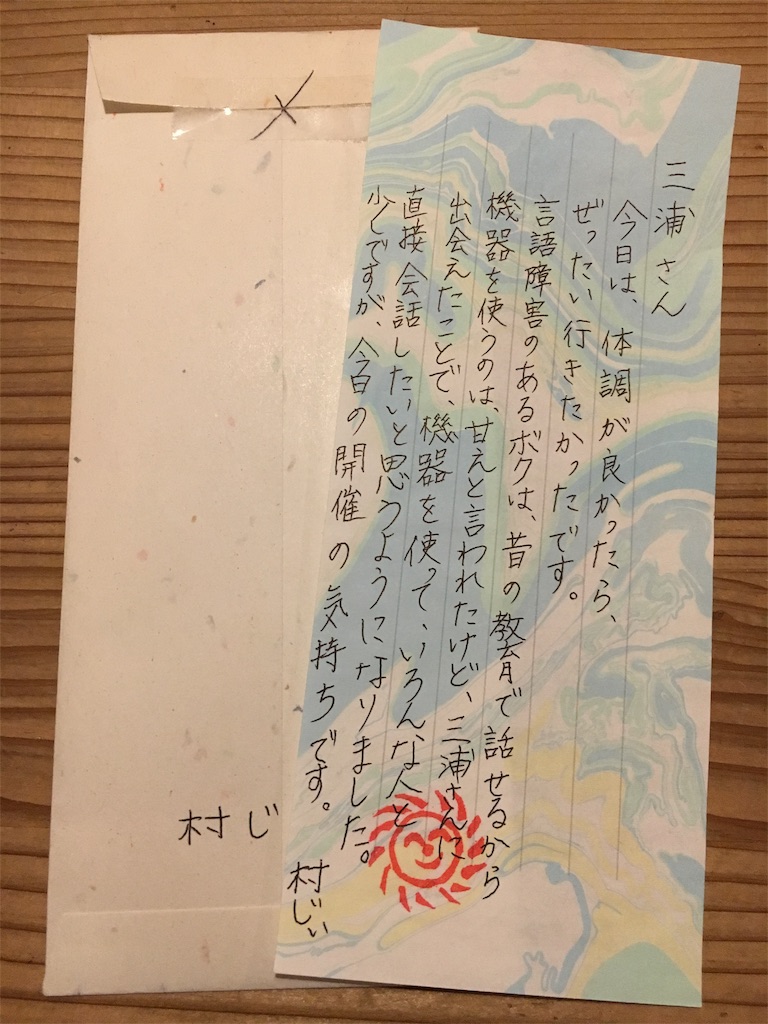 三浦さん
今日は、体調が良かったら、
ぜったい行きたかったです。
言語障害のあるボクは、昔の教育で話せるから
機器を使うのは、甘えと言われたけど、三浦さんに
出会えたことで、機器を使って、いろんな人と
直接会話したいと思うようになりました。
少しですが、今日の開催の気持ちです。
村じぃ
〆
村じ